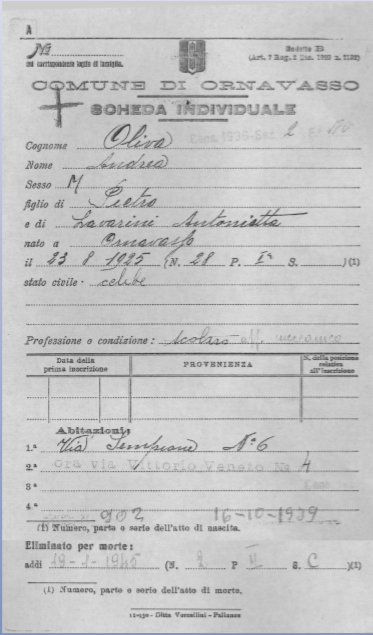 A
N.º
sul corrispondente foglio di famiglia.
Modello B
(Art. 7 Reg. 2 Dic. 1929 n. 2132)
COMUNE DI ORNAVASSO
SCHEDA INDIVIDUALE
Cognome Oliva
Cens. 1936-Sez. 2
Nome Andrea
Sesso M
figlio di Pietro
e di Lavarini Antonietta
nato a Ornavasso
il 23 8 1925 (N. 28 P. Iª S. )(1)
stato civile: celibe
Professione o condizione: scolaro off. meccanico
Data della prima inscrizione
PROVENIENZA
N. della posizione relativa all'inscrizione
Abitazioni:
1.ª Via Sempione Nº 6
2.ª Ora Via Vittorio Veneto Nº 4
3.ª
4.ª
902 16-10-1939
(1) Numero, parte e serie dell'atto di nascita.
Eliminato per morte:
addì 19-1-1945 (N. 2 P II S. C )(1)
(1) Numero, parte e serie dell'atto di morte.
Ditta Vercellini - Pallanza